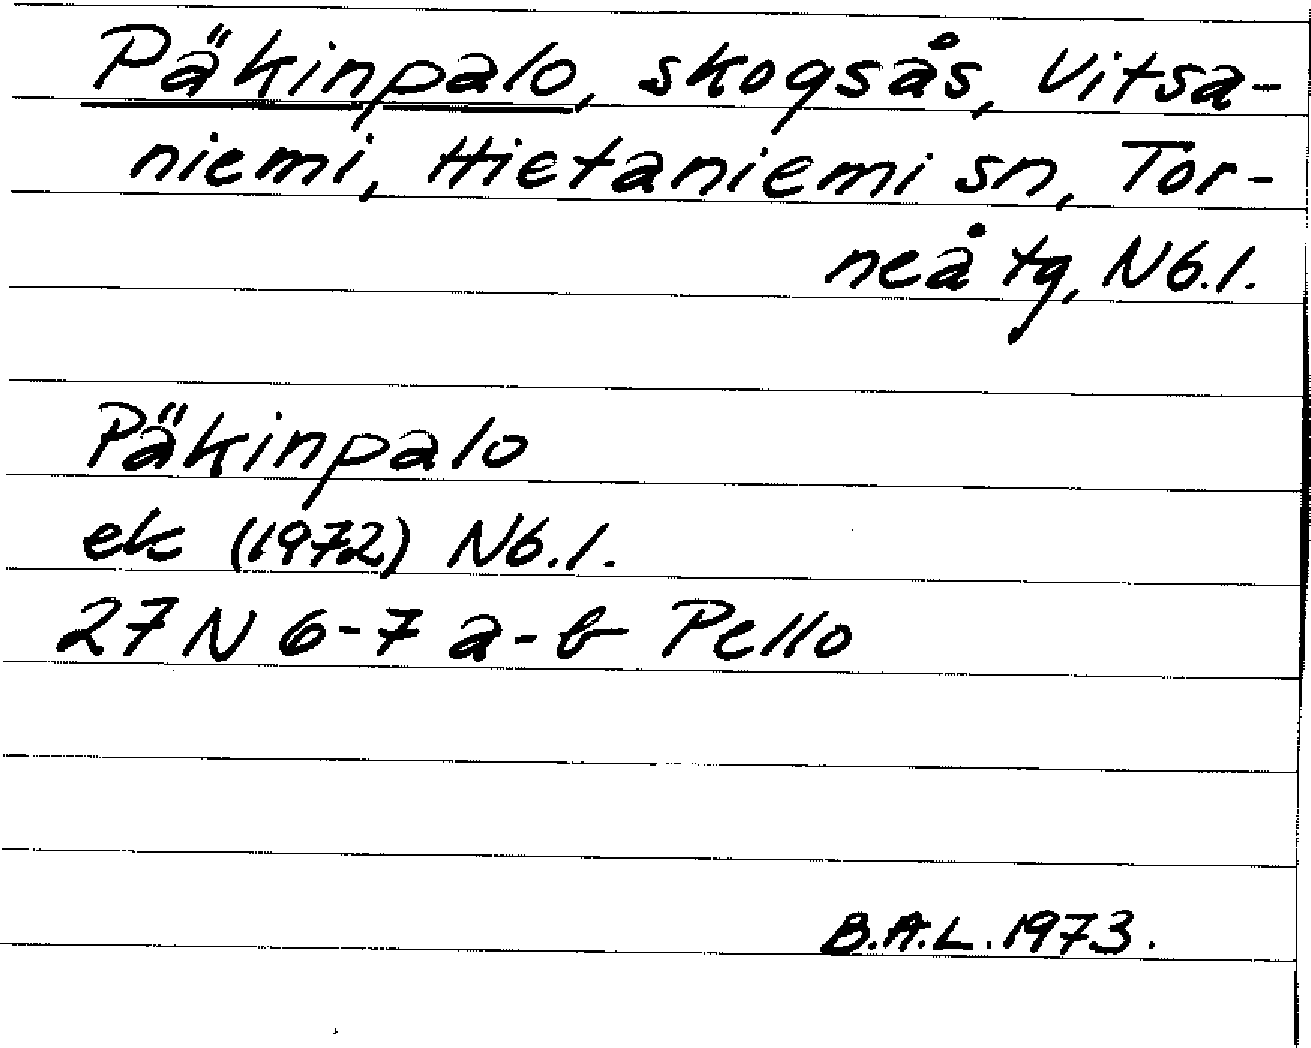 Päkinpalo, skogsås, Vitsa-
niemi, Hietaniemi sn, Tor-
neå tg, N6.1.
Päkinpalo
ek (1972) N6.1.
27 N 6-7 a-b Pello
B.A.L. 1973.